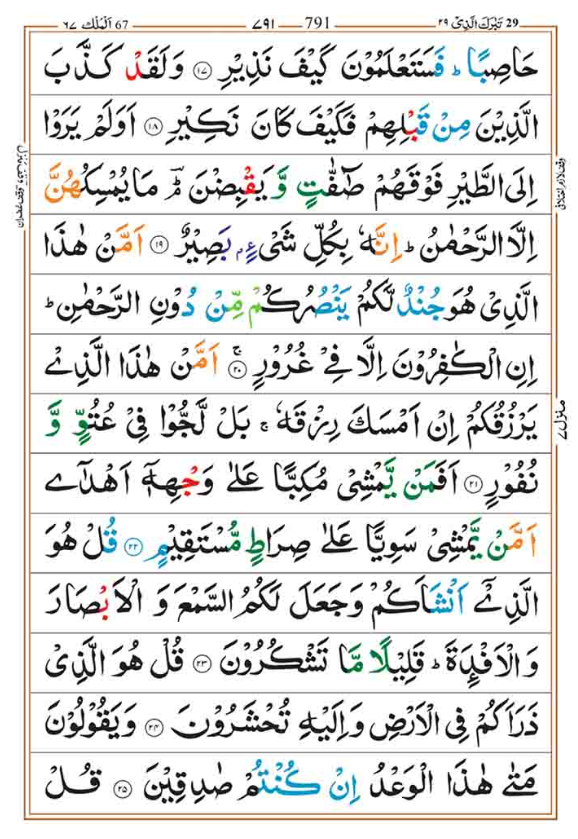 29 تَبٰرَكَ الَّذِیْ ٢٩ 791 ٧٩١ 67 اَلْمُلْك ٦٧
حَاصِبًا ؕ فَسَتَعْلَمُوْنَ كَیْفَ نَذِیْرِ ۝١٧ وَلَقَدْ كَذَّبَ
الَّذِیْنَ مِنْ قَبْلِهِمْ فَكَیْفَ كَانَ نَكِیْرِ ۝١٨ اَوَلَمْ یَرَوْا
اِلَی الطَّیْرِ فَوْقَهُمْ صٰٓفّٰتٍ وَّ یَقْبِضْنَ ؔۘ مَا یُمْسِكُهُنَّ
اِلَّا الرَّحْمٰنُ ؕ اِنَّهٗ بِكُلِّ شَیْءٍۭ بَصِیْرٌ ۝١٩ اَمَّنْ هٰذَا
الَّذِیْ هُوَ جُنْدٌ لَّكُمْ یَنْصُرُكُمْ مِّنْ دُوْنِ الرَّحْمٰنِ ؕ
اِنِ الْكٰفِرُوْنَ اِلَّا فِیْ غُرُوْرٍ ۝٢٠ۚ اَمَّنْ هٰذَا الَّذِیْ
یَرْزُقُكُمْ اِنْ اَمْسَكَ رِزْقَهٗ ۚ بَلْ لَّجُّوْا فِیْ عُتُوٍّ وَّ
نُفُوْرٍ ۝٢١ اَفَمَنْ یَّمْشِیْ مُكِبًّا عَلٰی وَجْهِهٖۤ اَهْدٰۤی
اَمَّنْ یَّمْشِیْ سَوِیًّا عَلٰی صِرَاطٍ مُّسْتَقِیْمٍ ۝٢٢ قُلْ هُوَ
الَّذِیْۤ اَنْشَاَكُمْ وَجَعَلَ لَكُمُ السَّمْعَ وَ الْاَبْصَارَ
وَ الْاَفْـِٕدَةَ ؕ قَلِیْلًا مَّا تَشْكُرُوْنَ ۝٢٣ قُلْ هُوَ الَّذِیْ
ذَرَاَكُمْ فِی الْاَرْضِ وَ اِلَیْهِ تُحْشَرُوْنَ ۝٢٤ وَیَقُوْلُوْنَ
مَتٰی هٰذَا الْوَعْدُ اِنْ كُنْتُمْ صٰدِقِیْنَ ۝٢٥ قُلْ
منزل ٧